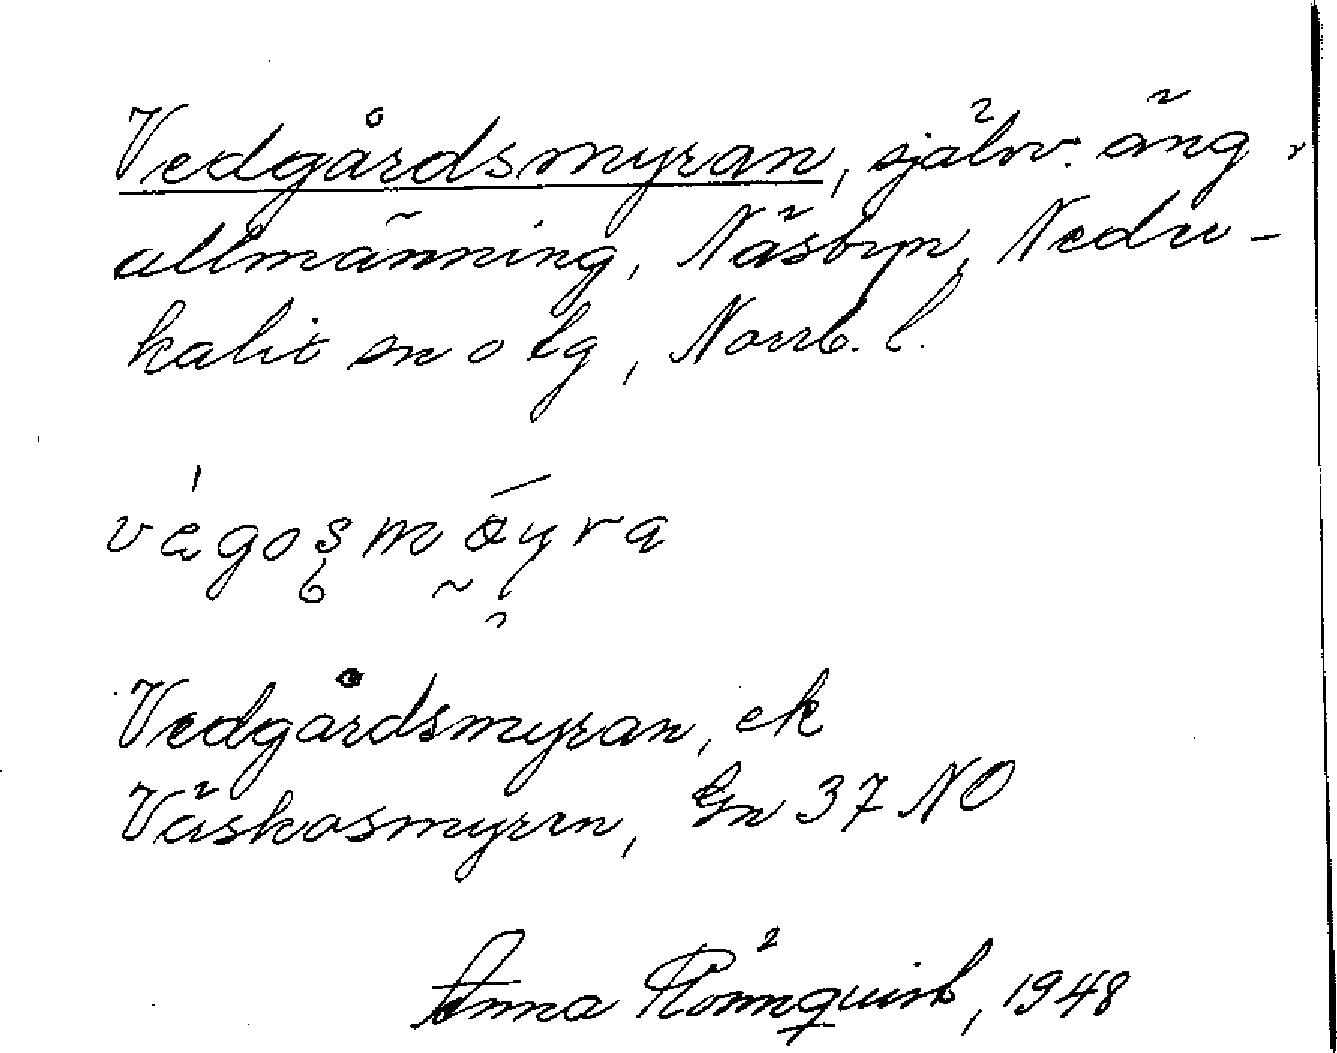 Vedgårdsmyran, själv. äng,
allmänning, Näsbyn, Neder-
kalix sn o tg, Norrb. l.
végosmöyra
Vedgårdsmyran, ek
Väskosmyren, Gn 37 NO
Anna Rönnquist, 1948